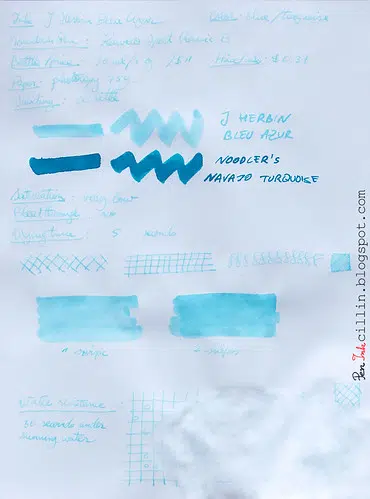 Ink: J Herbin Bleu Azur
Color: blue/turquoise
Kaweco Sport Classic B
Bottle
Paper:
Shading: a little
J HERBIN
BLEU AZUR
NOODLER'S
NAVAJO TURQUOISE
Saturation: very low
Bleedthrough: no
Drying time: 5 seconds
1 swipe
2 swipes
Water resistance:
30 seconds under
running water
Pen Ink cillin.blogspot.com